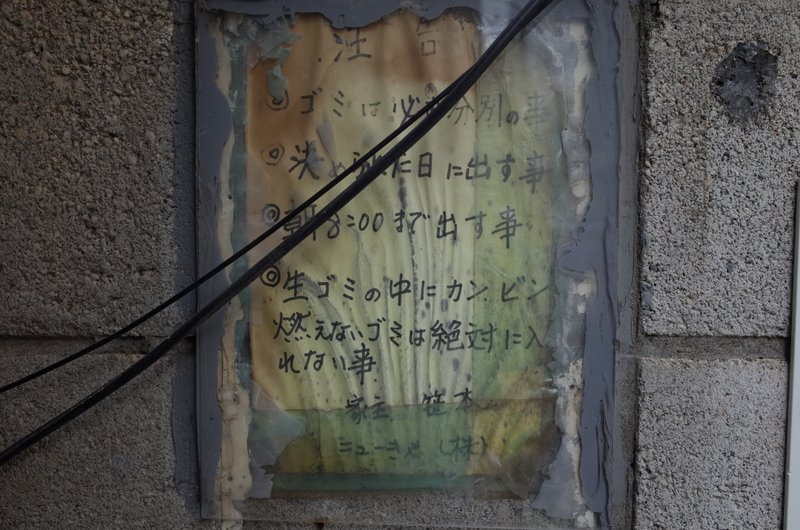 注
◎ゴミは必 分別の事
◎決められた日に出す事
◎朝8:00まで出す事
◎生ゴミの中にカンビン
燃えないゴミは絶対に入
れない事
家主 笹本
ニュー (株)